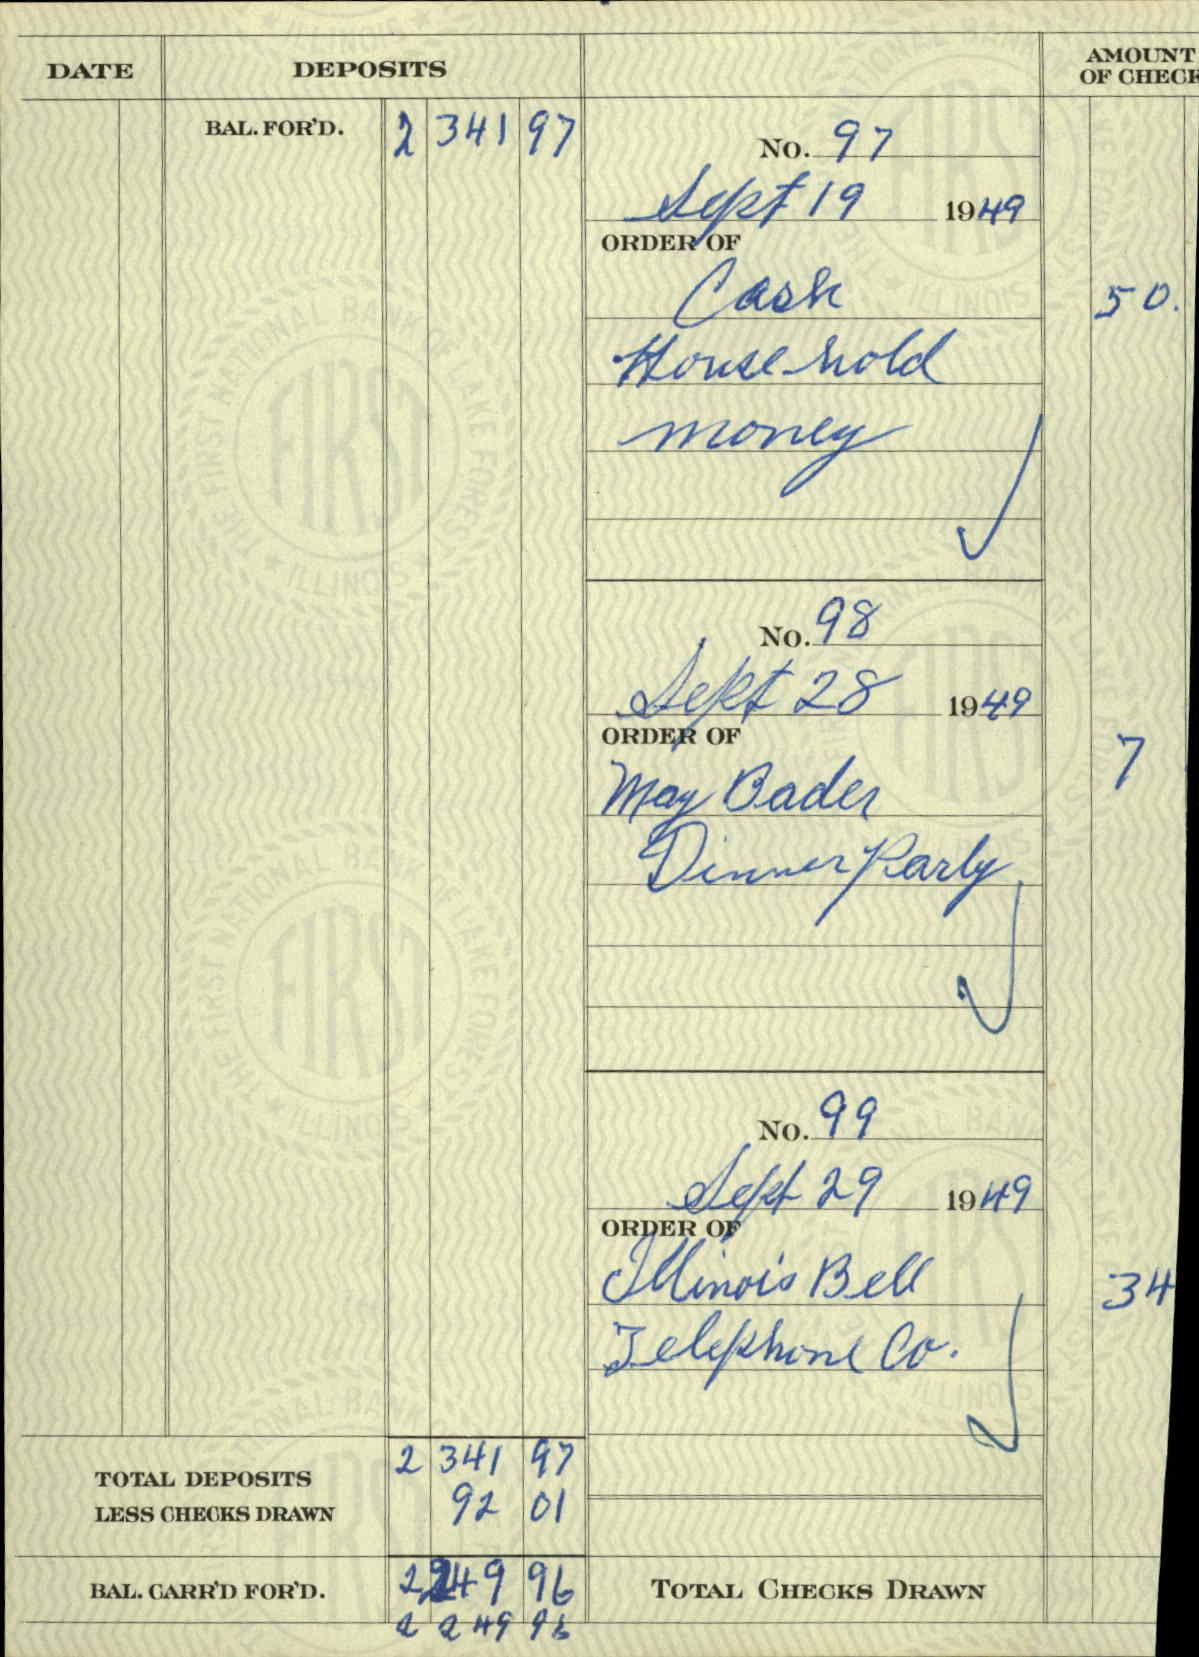 DATE DEPOSITS AMOUNT OF CHECK
BAL. FOR'D. 2 341 97
No. 97
Sept 19 1949
ORDER OF
Cash 50.
Household
money
No. 98
Sept 28 1949
ORDER OF
May Bader 7
Dinner Party
No. 99
Sept 29 1949
ORDER OF
Illinois Bell 34
Telephone Co.
TOTAL DEPOSITS 2 341 97
LESS CHECKS DRAWN 92 01
BAL. CARR'D FOR'D. 2 249 96 TOTAL CHECKS DRAWN
2 249 96